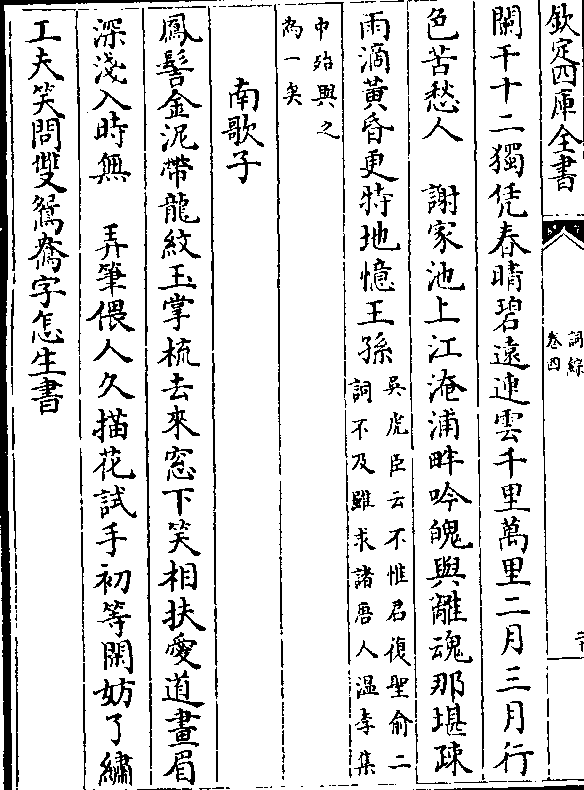 欽定四庫全書
詞綜
卷四
闌干十二獨凭春晴碧遠連雲千里萬里二月三月行
色苦愁人　謝家池上江淹浦畔吟魄與離魂那堪疎
雨滴黃昏更特地憶王孫
吳虎臣云不惟君復聖俞二
詞不及雖求諸唐人温李集
中殆與之
為一矣
南歌子
鳳髻金泥帶龍紋玉掌梳去來窓下笑相扶愛道畫眉
深淺入時無　弄筆偎人久描花試手初等閒妨了繡
工夫笑問雙鴛鴦字怎生書